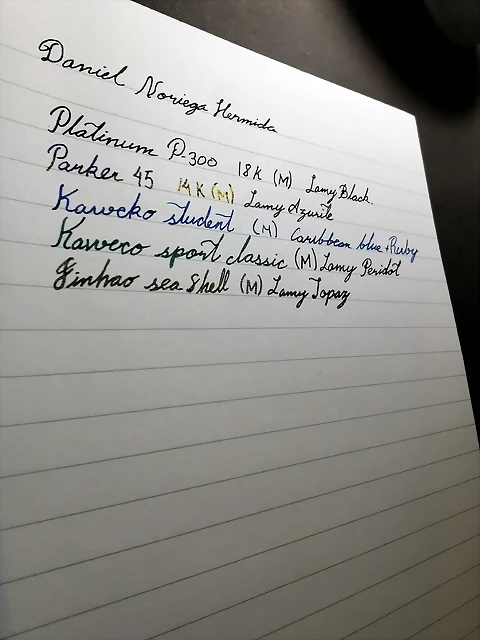 Daniel Noriega Hermida
Platinum P-300 18K (M) Lamy Black.
Parker 45 14K (M) Lamy Azurite
Kaweko student (M) Caribbean blue + Ruby
Kaweco sport classic (M) Lamy Peridot
Jinhao sea shell (M) Lamy Topaz